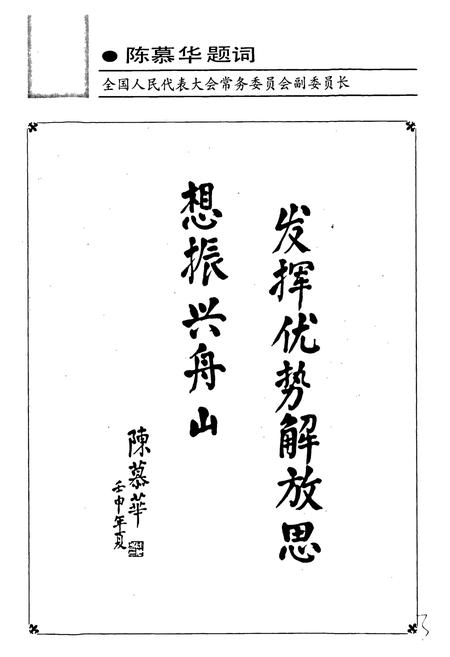 ● 陈慕华题词
全国人民代表大会常务委员会副委员长
发挥优势解放思
想振兴舟山
陳慕華
壬申年夏
3